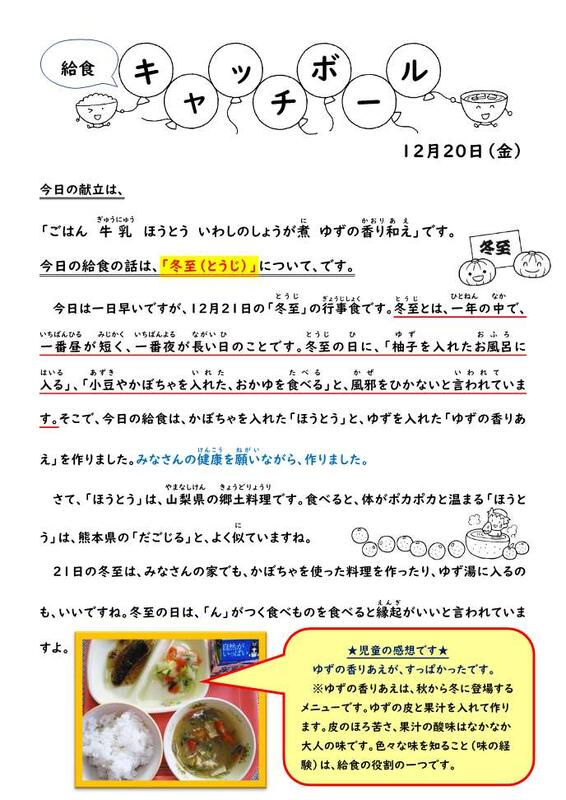 給食
キャッチボール
12月20日(金)
今日の献立は、
「ごはん 牛乳 ほうとう いわしのしょうが煮 ゆずの香り和え」です。
今日の給食の話は、「冬至(とうじ)」について、です。
冬至
今日は一日早いですが、12月21日の「冬至」の行事食です。冬至とは、一年の中で、
一番昼が短く、一番夜が長い日のことです。冬至の日に、「柚子を入れたお風呂に
入る」、「小豆やかぼちゃを入れた、おかゆを食べる」と、風邪をひかないと言われていま
す。そこで、今日の給食は、かぼちゃを入れた「ほうとう」と、ゆずを入れた「ゆずの香りあ
え」を作りました。みなさんの健康を願いながら、作りました。
さて、「ほうとう」は、山梨県の郷土料理です。食べると、体がポカポカと温まる「ほうと
う」は、熊本県の「だごじる」と、よく似ていますね。
21日の冬至は、みなさんの家でも、かぼちゃを使った料理を作ったり、ゆず湯に入るの
も、いいですね。冬至の日は、「ん」がつく食べものを食べると縁起がいいと言われていま
すよ。
自然が
いっぱい
★児童の感想です★
ゆずの香りあえが、すっぱかったです。
※ゆずの香りあえは、秋から冬に登場する
メニューです。ゆずの皮と果汁を入れて作り
ます。皮のほろ苦さ、果汁の酸味はなかなか
大人の味です。色々な味を知ること(味の経
験)は、給食の役割の一つです。